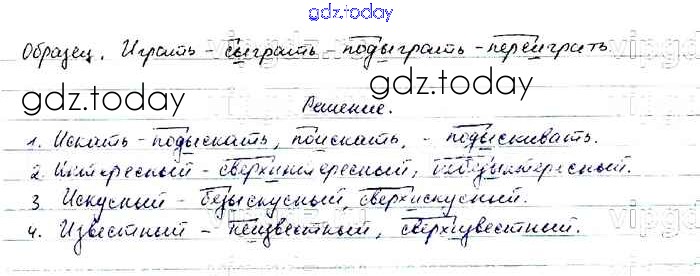 gdz.today
Образец. Играть - сыграть - подыграть - переиграть.
gdz.today gdz.today
Решение.
1. Искать - подыскать, поискать, - подыскивать.
2. Интересный - сверхинтересный, небезынтересный.
3. Искусный - безыскусный, сверхискусный.
4. Известный - неизвестный, сверхизвестный.